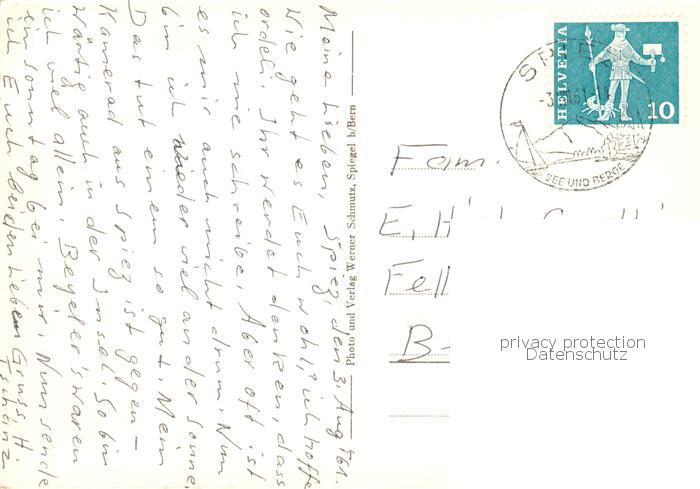 Meine Lieben, Spiez, den 3. Aug. 61.
Wie geht es Euch wohl? ich hoffe
ordeli. Ihr werdet denken, dass
ich nie schreibe. Aber oft ist
es mir auch nicht drum. Nun
bin ich wieder viel an der Sonne.
Das tut einem so gut. Mein
Kamerad aus Spiez ist gegen-
wärtig auch in der Insel. So bin
ich viel allein. Begeler's waren
ein Sonntag bei mir. Nun sende
ich Euch beiden lieben Gruss, H.
Photo und Verlag Werner Schmutz, Spiegel b/Bern
HELVETIA
10
SPIEZ
SEE UND BERGE
Fam.
E. H
Fell
B-
privacy protection
Datenschutz